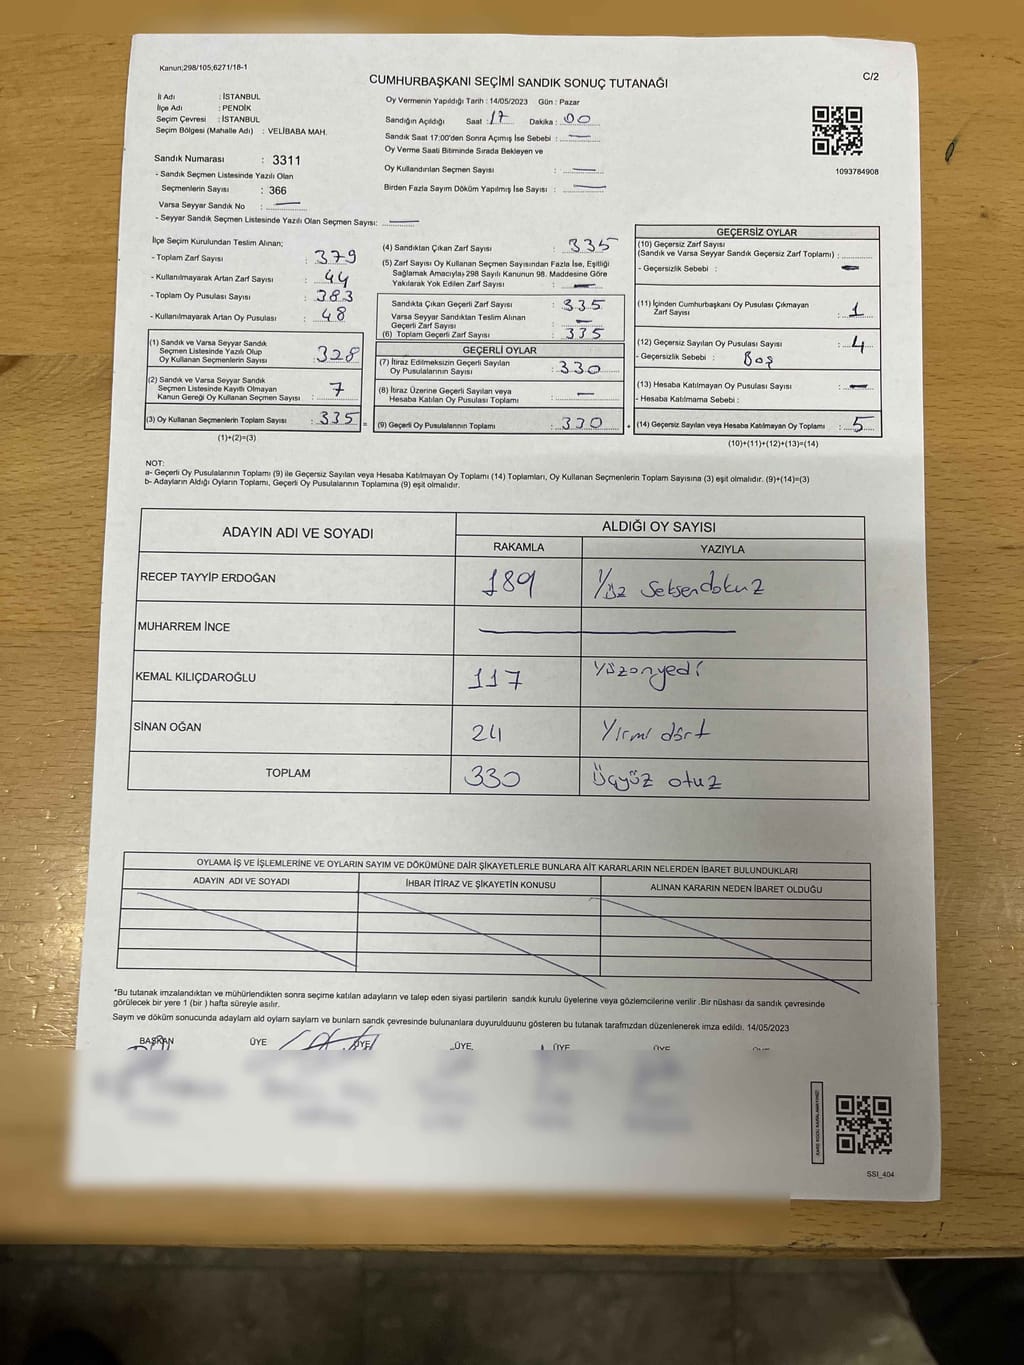 Kanun;298/105;6271/18-1
C/2
CUMHURBAŞKANI SEÇİMİ SANDIK SONUÇ TUTANAĞI
İl Adı : İSTANBUL
İlçe Adı : PENDİK
Seçim Çevresi : İSTANBUL
Seçim Bölgesi (Mahalle Adı) : VELİBABA MAH.
Sandık Numarası : 3311
- Sandık Seçmen Listesinde Yazılı Olan
Seçmenlerin Sayısı : 366
Varsa Seyyar Sandık No : —
- Seyyar Sandık Seçmen Listesinde Yazılı Olan Seçmen Sayısı: —
Oy Vermenin Yapıldığı Tarih : 14/05/2023 Gün : Pazar
Sandığın Açıldığı Saat : 17 Dakika : 00
Sandık Saat 17:00'den Sonra Açımış İse Sebebi : —
Oy Verme Saati Bitiminde Sırada Bekleyen ve
Oy Kullandırılan Seçmen Sayısı : —
Birden Fazla Sayım Döküm Yapılmış İse Sayısı : —
1093784908
İlçe Seçim Kurulundan Teslim Alınan;
- Toplam Zarf Sayısı : 379
- Kullanılmayarak Artan Zarf Sayısı : 44
- Toplam Oy Pusulası Sayısı : 383
- Kullanılmayarak Artan Oy Pusulası : 48
(1) Sandık ve Varsa Seyyar Sandık
Seçmen Listesinde Yazılı Olup
Oy Kullanan Seçmenlerin Sayısı : 328
(2) Sandık ve Varsa Seyyar Sandık
Seçmen Listesinde Kayıtlı Olmayan
Kanun Gereği Oy Kullanan Seçmen Sayısı : 7
(3) Oy Kullanan Seçmenlerin Toplam Sayısı : 335
(1)+(2)=(3)
=
(4) Sandıktan Çıkan Zarf Sayısı : 335
(5) Zarf Sayısı Oy Kullanan Seçmen Sayısından Fazla İse, Eşitliği
Sağlamak Amacıyla 298 Sayılı Kanunun 98. Maddesine Göre
Yakılarak Yok Edilen Zarf Sayısı : —
Sandıkta Çıkan Geçerli Zarf Sayısı : 335
Varsa Seyyar Sandıktan Teslim Alınan
Geçerli Zarf Sayısı : —
(6) Toplam Geçerli Zarf Sayısı : 335
GEÇERLİ OYLAR
(7) İtiraz Edilmeksizin Geçerli Sayılan
Oy Pusulalarının Sayısı : 330
(8) İtiraz Üzerine Geçerli Sayılan veya
Hesaba Katılan Oy Pusulası Toplamı : —
(9) Geçerli Oy Pusulalarının Toplamı : 330
+
GEÇERSİZ OYLAR
(10) Geçersiz Zarf Sayısı
(Sandık ve Varsa Seyyar Sandık Geçersiz Zarf Toplamı) :
- Geçersizlik Sebebi : —
(11) İçinden Cumhurbaşkanı Oy Pusulası Çıkmayan
Zarf Sayısı : 1
(12) Geçersiz Sayılan Oy Pusulası Sayısı : 4
- Geçersizlik Sebebi : Boş
(13) Hesaba Katılmayan Oy Pusulası Sayısı : —
- Hesaba Katılmama Sebebi :
(14) Geçersiz Sayılan veya Hesaba Katılmayan Oy Toplamı : 5
(10)+(11)+(12)+(13)=(14)
NOT:
a- Geçerli Oy Pusulalarının Toplamı (9) ile Geçersiz Sayılan veya Hesaba Katılmayan Oy Toplamı (14) Toplamları, Oy Kullanan Seçmenlerin Toplam Sayısına (3) eşit olmalıdır. (9)+(14)=(3)
b- Adayların Aldığı Oyların Toplamı, Geçerli Oy Pusulalarının Toplamına (9) eşit olmalıdır.
ADAYIN ADI VE SOYADI
ALDIĞI OY SAYISI
RAKAMLA YAZIYLA
RECEP TAYYİP ERDOĞAN 189 Yüz seksendokuz
MUHARREM İNCE —
KEMAL KILIÇDAROĞLU 117 Yüzonyedi
SİNAN OĞAN 24 Yirmi dört
TOPLAM 330 Üçyüz otuz
OYLAMA İŞ VE İŞLEMLERİNE VE OYLARIN SAYIM VE DÖKÜMÜNE DAİR ŞİKAYETLERLE BUNLARA AİT KARARLARIN NELERDEN İBARET BULUNDUKLARI
ADAYIN ADI VE SOYADI İHBAR İTİRAZ VE ŞİKAYETİN KONUSU ALINAN KARARIN NEDEN İBARET OLDUĞU
*Bu tutanak imzalandıktan ve mühürlendikten sonra seçime katılan adayların ve talep eden siyasi partilerin sandık kurulu üyelerine veya gözlemcilerine verilir .Bir nüshası da sandık çevresinde
görülecek bir yere 1 (bir ) hafta süreyle asılır.
Sayım ve döküm sonucunda adaylam ald oylam saylam ve bunlarn sandk çevresinde bulunanlara duyurulduunu gösteren bu tutanak tarafmzdan düzenlenerek imza edildi. 14/05/2023
BAŞKAN ÜYE ÜYE ÜYE ÜYE ÜYE
SSI_404